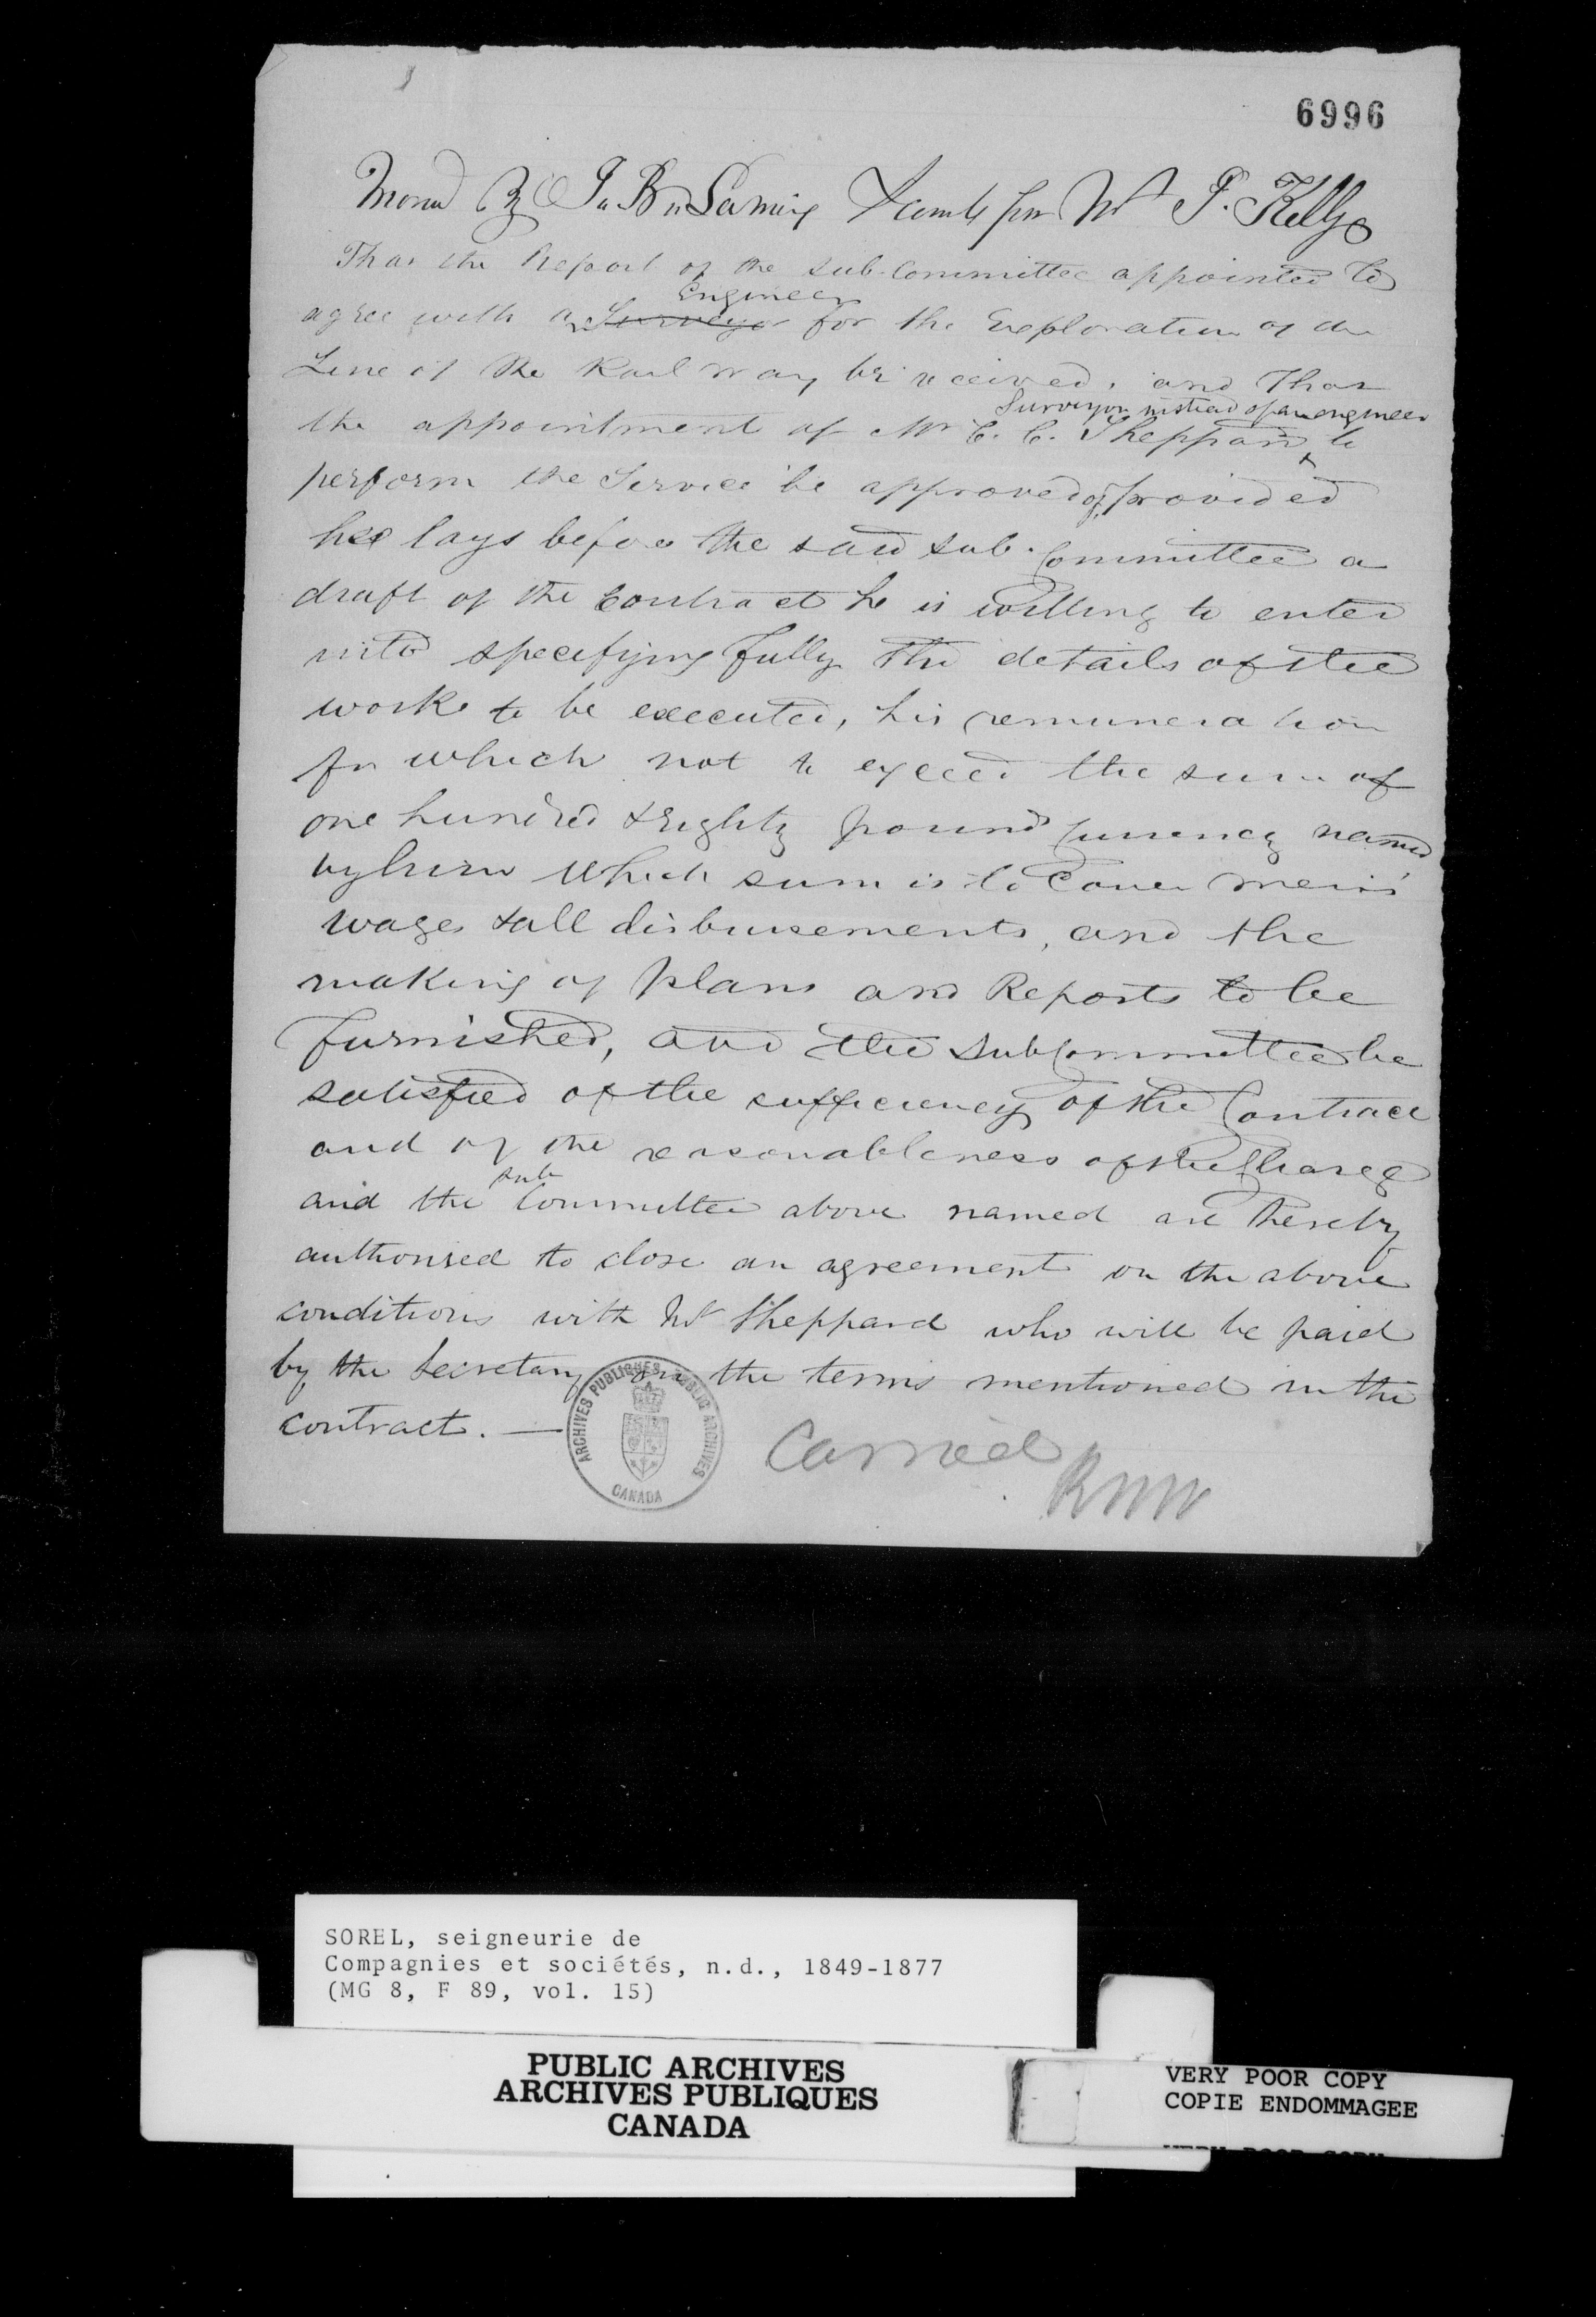 6996
Moved By J. Bn. Laming Seconded for Mr P. Kelly
That the Report of the sub-Committee appointed to
Engineer
agree with a Surveyor for the Exploration of the
Line of the Rail way be received, and That
Surveyor instead of an engineer
the appointment of Mr C. C. Sheppard to
perform the Service be approved of, provided
hee lays before the said sub-Committee a
draft of the Contract he is willing to enter
into specifying fully the details of the
works to be executed, his remuneration
for which not to exceed the sum of
one hundred & Eighty pounds Currency named
by him which sum is to Cover men's
wages & all disbursements, and the
making of plans and Reports to be
furnished, and the Sub Committee be
satisfied of the sufficiency of the Contract
and of the reasonableness of the Charge
sub
and the Committee above named are thereby
authorised to close an agreement on the above
conditions with Mr Sheppard who will be paid
by the Secretary on the terms mentioned in the
contract. —
Carried
ARCHIVES PUBLIQUES PUBLIC ARCHIVES
CANADA
SOREL, seigneurie de
Compagnies et sociétés, n.d., 1849-1877
(MG 8, F 89, vol. 15)
PUBLIC ARCHIVES
ARCHIVES PUBLIQUES
CANADA
VERY POOR COPY
COPIE ENDOMMAGEE
VERY POOR COPY